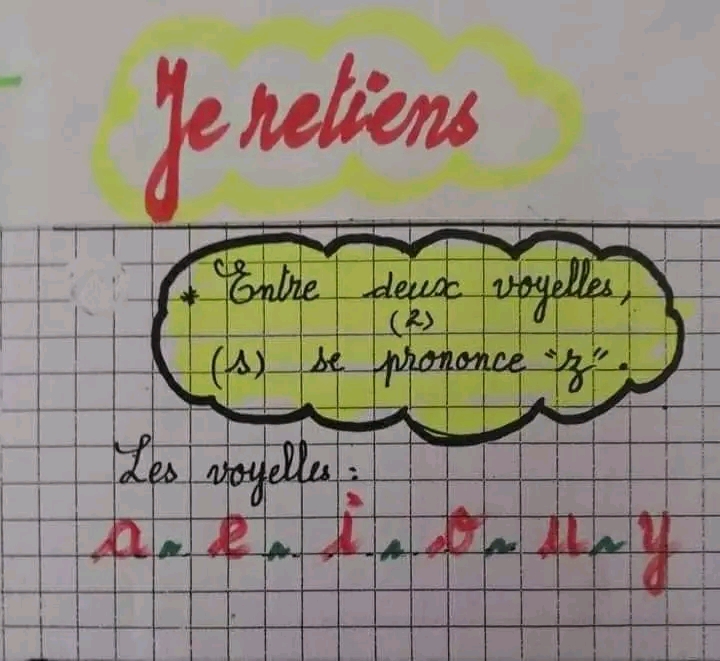 Je retiens
* Entre deux voyelles,
(2)
(s) se prononce "z".
Les voyelles :
a - e - i - o - u - y